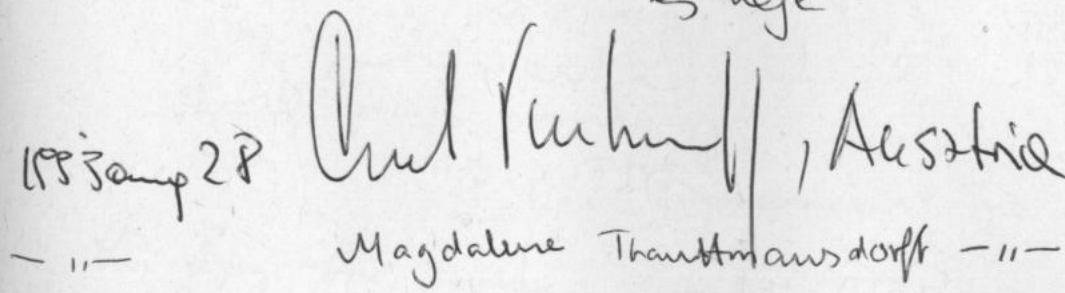 és neje
1993 aug 28 , Ausztria
— „ — Magdalene Thauttmansdorff — „ —